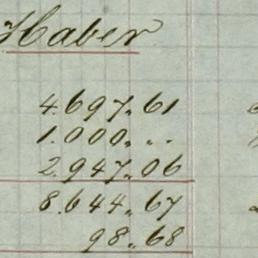 Haber
4.697,,61
1.000,, ..
2.947,,06
8.644,,67
98,,68